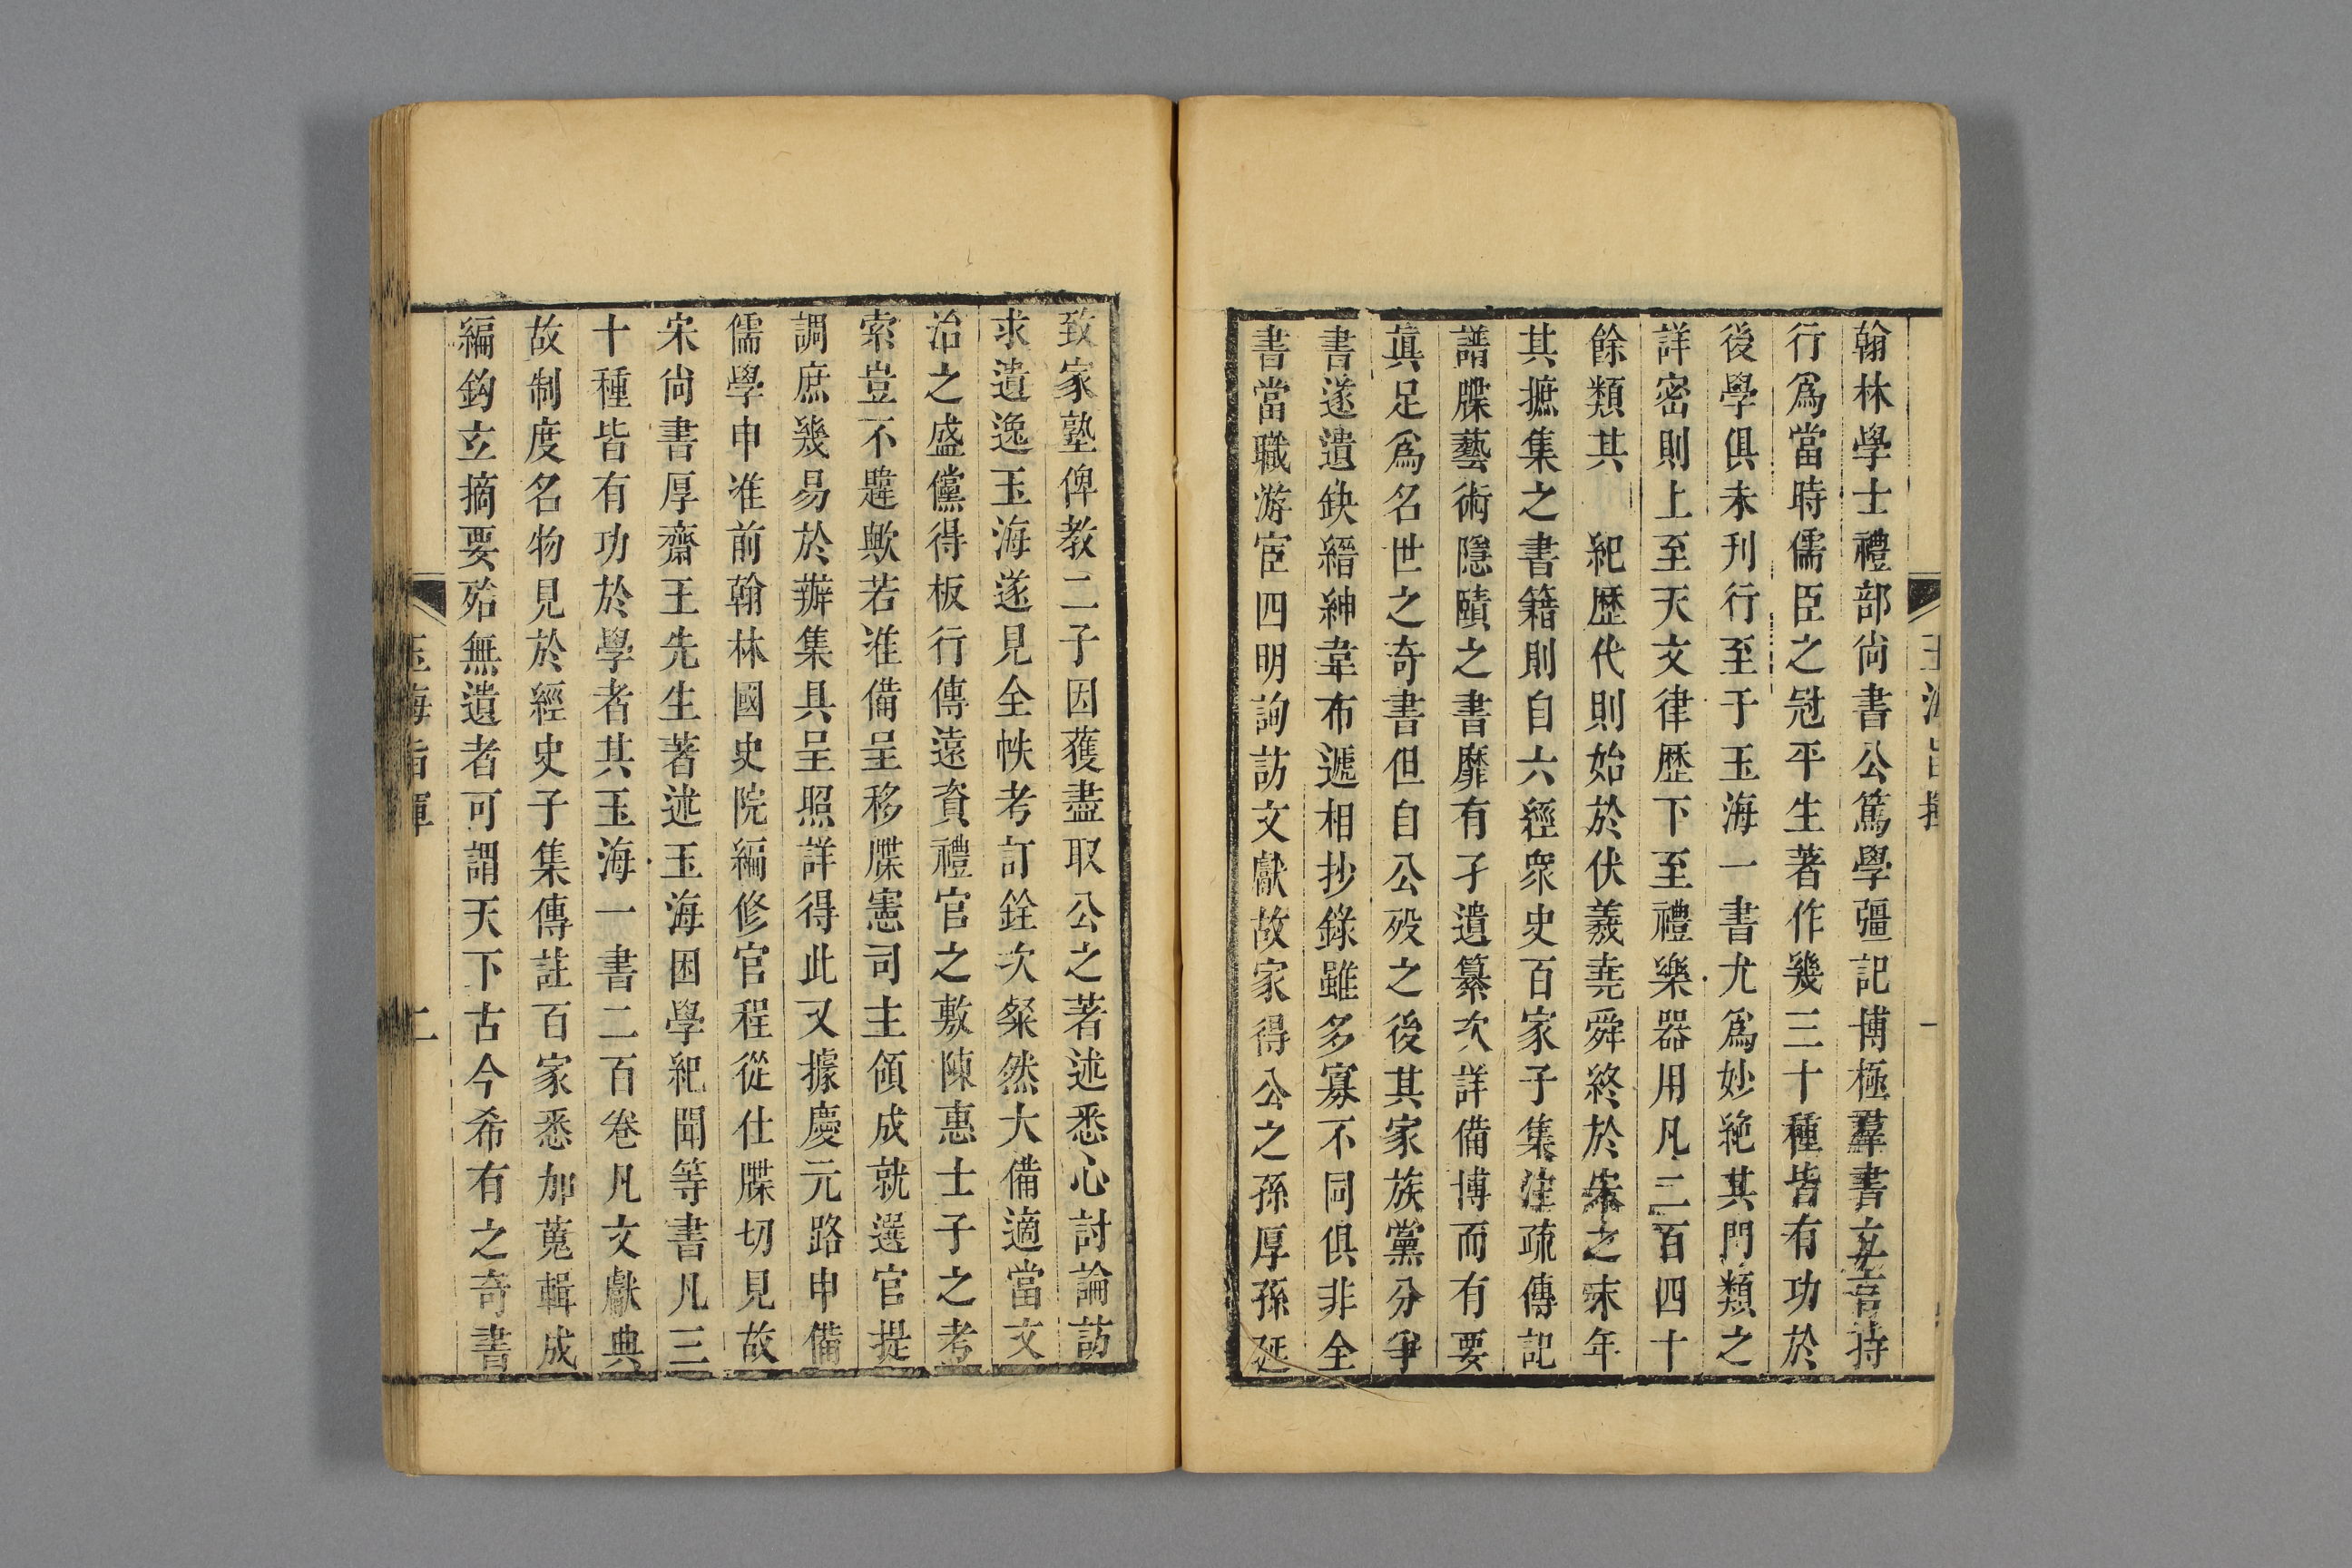 翰林學士禮部尚書公篤學彊記博極羣書立言持
行爲當時儒臣之冠平生著作幾三十種皆有功於
後學俱未刊行至于玉海一書尤爲妙絶其門類之
詳密則上至天文律歷下至禮樂器用凡二百四十
餘類其 紀歷代則始於伏羲堯舜終於宋之末年
其摭集之書籍則自六經衆史百家子集注疏傳記
譜牒藝術隱賾之書靡有孑遺纂次詳備博而有要
真足爲名世之奇書但自公歿之後其家族黨分爭
書遂遺缺縉紳韋布遞相抄錄雖多寡不同俱非全
書當職游宦四明詢訪文獻故家得公之孫厚孫延
致家塾俾教二子因獲盡取公之著述悉心討論訪
求遺逸玉海遂見全帙考訂銓次粲然大備適當文
治之盛儻得板行傳遠資禮官之敷陳惠士子之考
索豈不韙歟若准備呈移牒憲司主領成就選官提
調庶幾易於辦集具呈照詳得此又據慶元路申備
儒學申准前翰林國史院編修官程從仕牒切見故
宋尚書厚齋王先生著述玉海困學紀聞等書凡三
十種皆有功於學者其玉海一書二百卷凡文獻典
故制度名物見於經史子集傳註百家悉加蒐輯成
編鈎立摘要殆無遺者可謂天下古今希有之奇書
玉海指揮
二